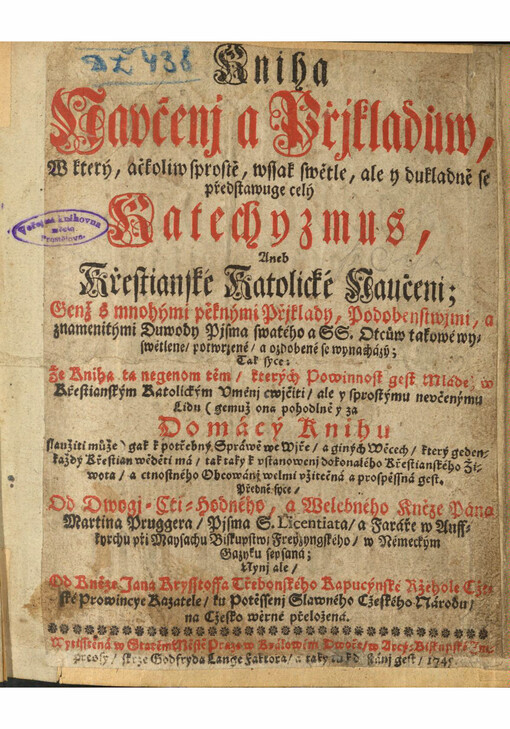 DZ 438
Kniha
Navčenj a Přjkladůw,
W který, ačkoliw sprostě, wssak swětle, ale y dukladně se
představuge celý
Veřejná knihovna
města
Katechyzmus,
Aneb
Křestianské Katolické Naučeni;
Genž s mnohými pěknými Přjklady, Podobenstwjmi, a
znamenitými Duwody Pjsma swatého a SS. Otcůw takowé wy-
swětlene/ potwrzené/ a ozdobené se wynacházý;
Tak syce:
Že Kniha ta negenom těm/ kterých Powinnost gest Mláde, w
Křestianským Katolickým Uměnj cwjčiti/ ale y sprostýmu neučenýmu
Lidu (gemuž ona pohodlně y za
Domácý Knihu
slaužiti může) gak k potřebný Spráwě we Wjře/ a giných Wěcech/ který geden-
každý Křestian wěděti má/ tak taky k ustanowenj dokonalého Křestianského Ži-
wota/ a ctnostného Obcowánj welmi vžitečná a prospěssná gest.
Předně syce/
Od Dwogj-Cti-Hodného, a Welebného Kněze Pána
Martina Pruggera/ Pjsma S. Licentiata/ a Faráře w Auff-
kyrchu při Maysachu Biskupstwj Freyzyngského/ w Německým
Gazyku sepsaná;
Nynj ale/
Od Kněze Jana Krysstoffa Třebonského Kapucýnské Ržehole Cže-
ské Prowincye Kazatele/ ku Potěssenj Slawného Cžeského Národu/
na Cžesko wěrně přeložená.
Wytisstěná w Starém Městě Praze w Králowým Dwoře/ w Arcy-Biskupské Im-
pressý/ skrze Godfryda Lange Faktora/ a taky tu k dostánj gest/ 1745.